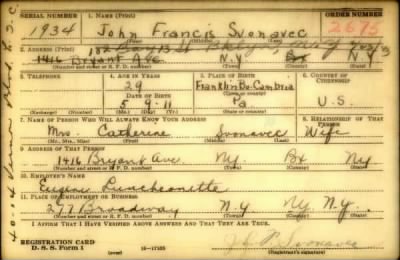 SERIAL NUMBER 1. NAME (Print) ORDER NUMBER
1934 John Francis Svonavec 2675
(First) (Middle) (Last)
2. ADDRESS (Print)
1416 Bryant Ave N.Y Bx N.Y
(Number and street or R. F. D. number) (Town) (County) (State)
3. TELEPHONE 4. AGE IN YEARS 5. PLACE OF BIRTH 6. COUNTRY OF CITIZENSHIP
29 Franklin Bo. Cambria
DATE OF BIRTH (Town or county)
5 9 - 11 Pa. U.S.
(Exchange) (Number) (Mo.) (Day) (Yr.) (State or country)
7. NAME OF PERSON WHO WILL ALWAYS KNOW YOUR ADDRESS 8. RELATIONSHIP OF THAT PERSON
Mrs. Catherine Svonavec Wife
(Mr., Mrs., Miss) (First) (Middle) (Last)
9. ADDRESS OF THAT PERSON
1416 Bryant Ave. Ny. Bx Ny
(Number and street or R. F. D. number) (Town) (County) (State)
10. EMPLOYER'S NAME
Eugene Luncheonette
11. PLACE OF EMPLOYMENT OR BUSINESS
277 Broadway N.Y Ny. N.Y.
(Number and street or R. F. D. number) (Town) (County) (State)
I AFFIRM THAT I HAVE VERIFIED ABOVE ANSWERS AND THAT THEY ARE TRUE.
REGISTRATION CARD
D. S. S. Form 1 (over) 16—17105 (Registrant's signature)